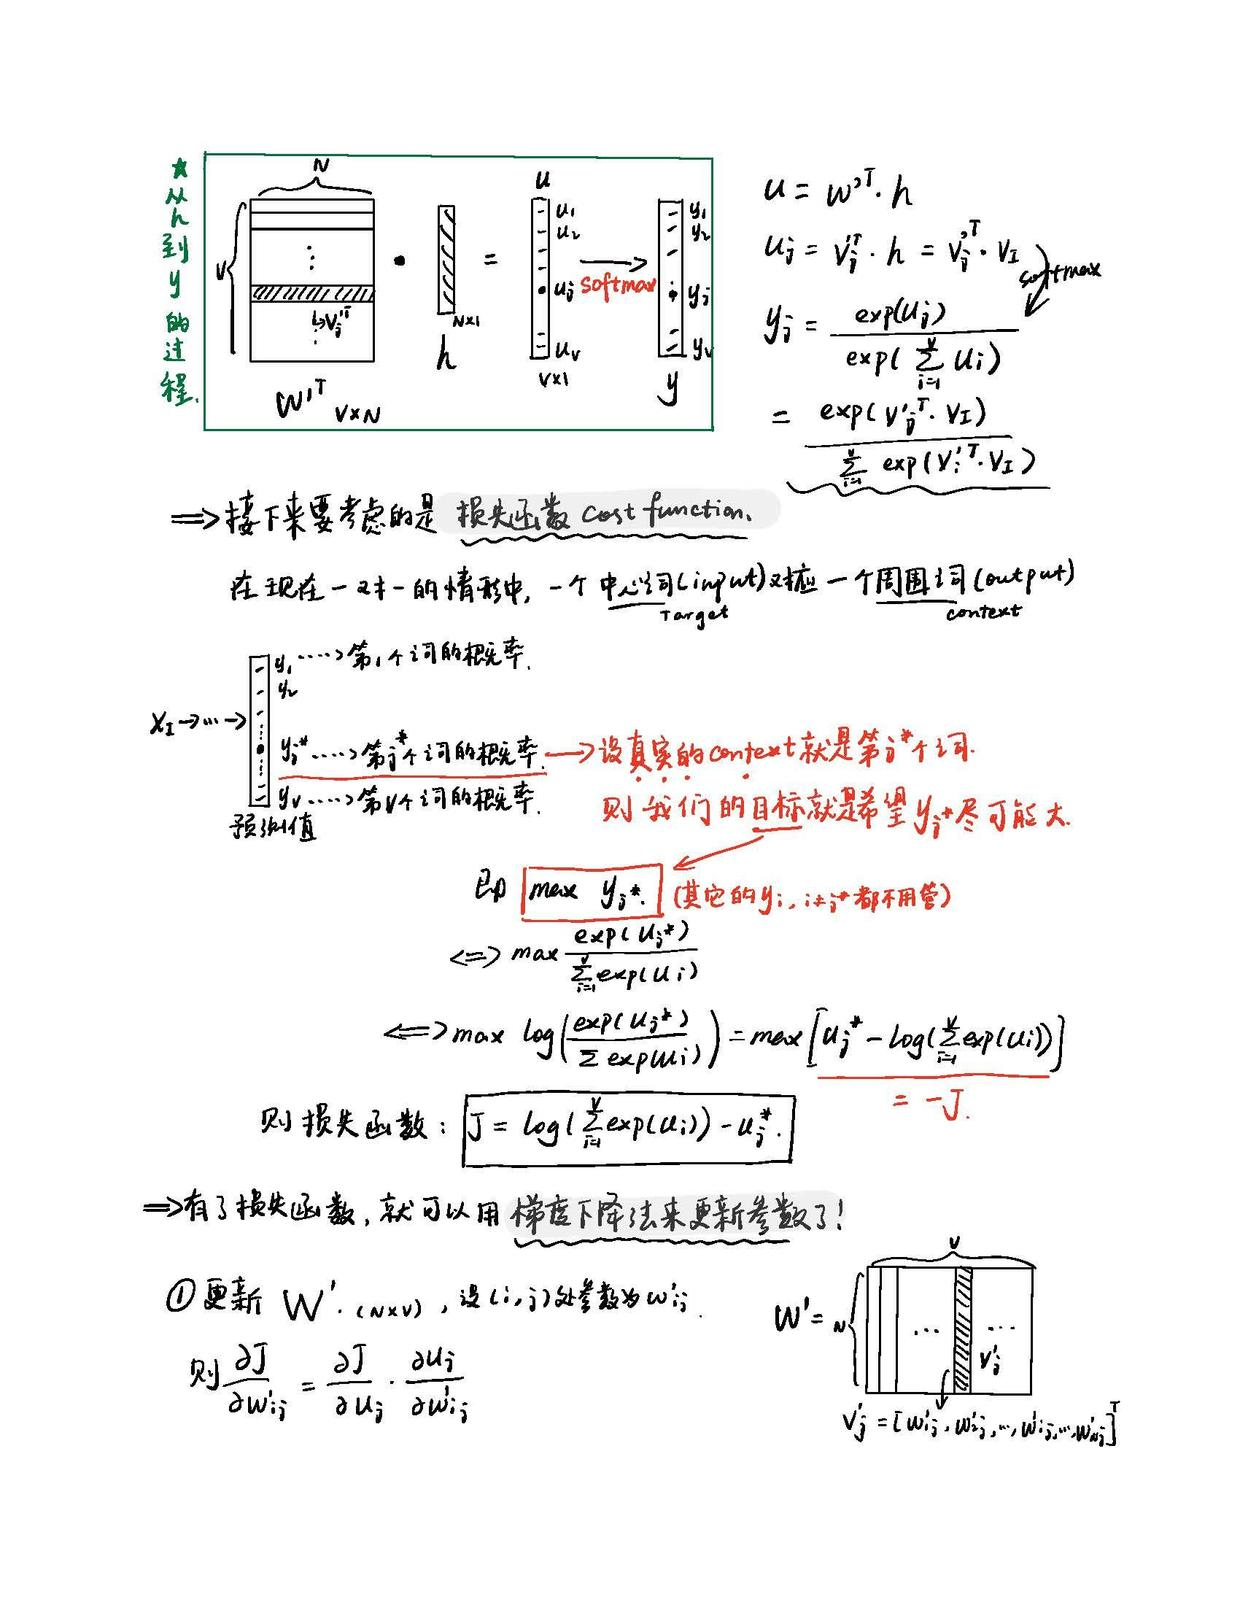 ★从h到y的过程.
N
V
V'ⱼᵀ
W'ᵀ V×N
•
N×1
h
=
u
u₁
u₂
uⱼ
u_V
V×1
softmax
y₁
y₂
yⱼ
y_V
y
u = W'ᵀ · h
uⱼ = V'ⱼᵀ · h = V'ⱼᵀ · V_I
softmax
yⱼ = exp(uⱼ) / exp(∑ᵢ₌₁ⱽ uᵢ)
= exp(V'ⱼᵀ · V_I) / ∑ᵢ₌₁ⱽ exp(V'ᵢᵀ · V_I)
⇒ 接下来要考虑的是 损失函数 cost function.
在现在一对一的情形中, 一个中心词(input)对应一个周围词(output)
Target context
y₁ ····> 第1个词的概率.
y₂
X_I → ··· →
yⱼ* ····> 第j*个词的概率. → 设真实的context就是第j*个词.
y_V ····> 第V个词的概率.
预测值
则我们的目标就是希望yⱼ*尽可能大.
即 max yⱼ*. (其它的yᵢ, i≠j*都不用管)
<=> max exp(uⱼ*) / ∑ᵢ₌₁ⱽ exp(uᵢ)
<=> max log(exp(uⱼ*) / ∑ exp(uᵢ)) = max[uⱼ* - log(∑ᵢ₌₁ⱽ exp(uᵢ))]
= -J.
则损失函数: J = log(∑ᵢ₌₁ⱽ exp(uᵢ)) - uⱼ*.
⇒ 有了损失函数, 就可以用 梯度下降法来更新参数了!
① 更新 W'. (N×V), 设(i,j)处参数为w'ᵢⱼ.
则 ∂J/∂w'ᵢⱼ = ∂J/∂uⱼ · ∂uⱼ/∂w'ᵢⱼ
V
W' = N
··· ···
V'ⱼ
V'ⱼ = [w'₁ⱼ, w'₂ⱼ, ..., w'ᵢⱼ, ..., w'_Nⱼ]ᵀ